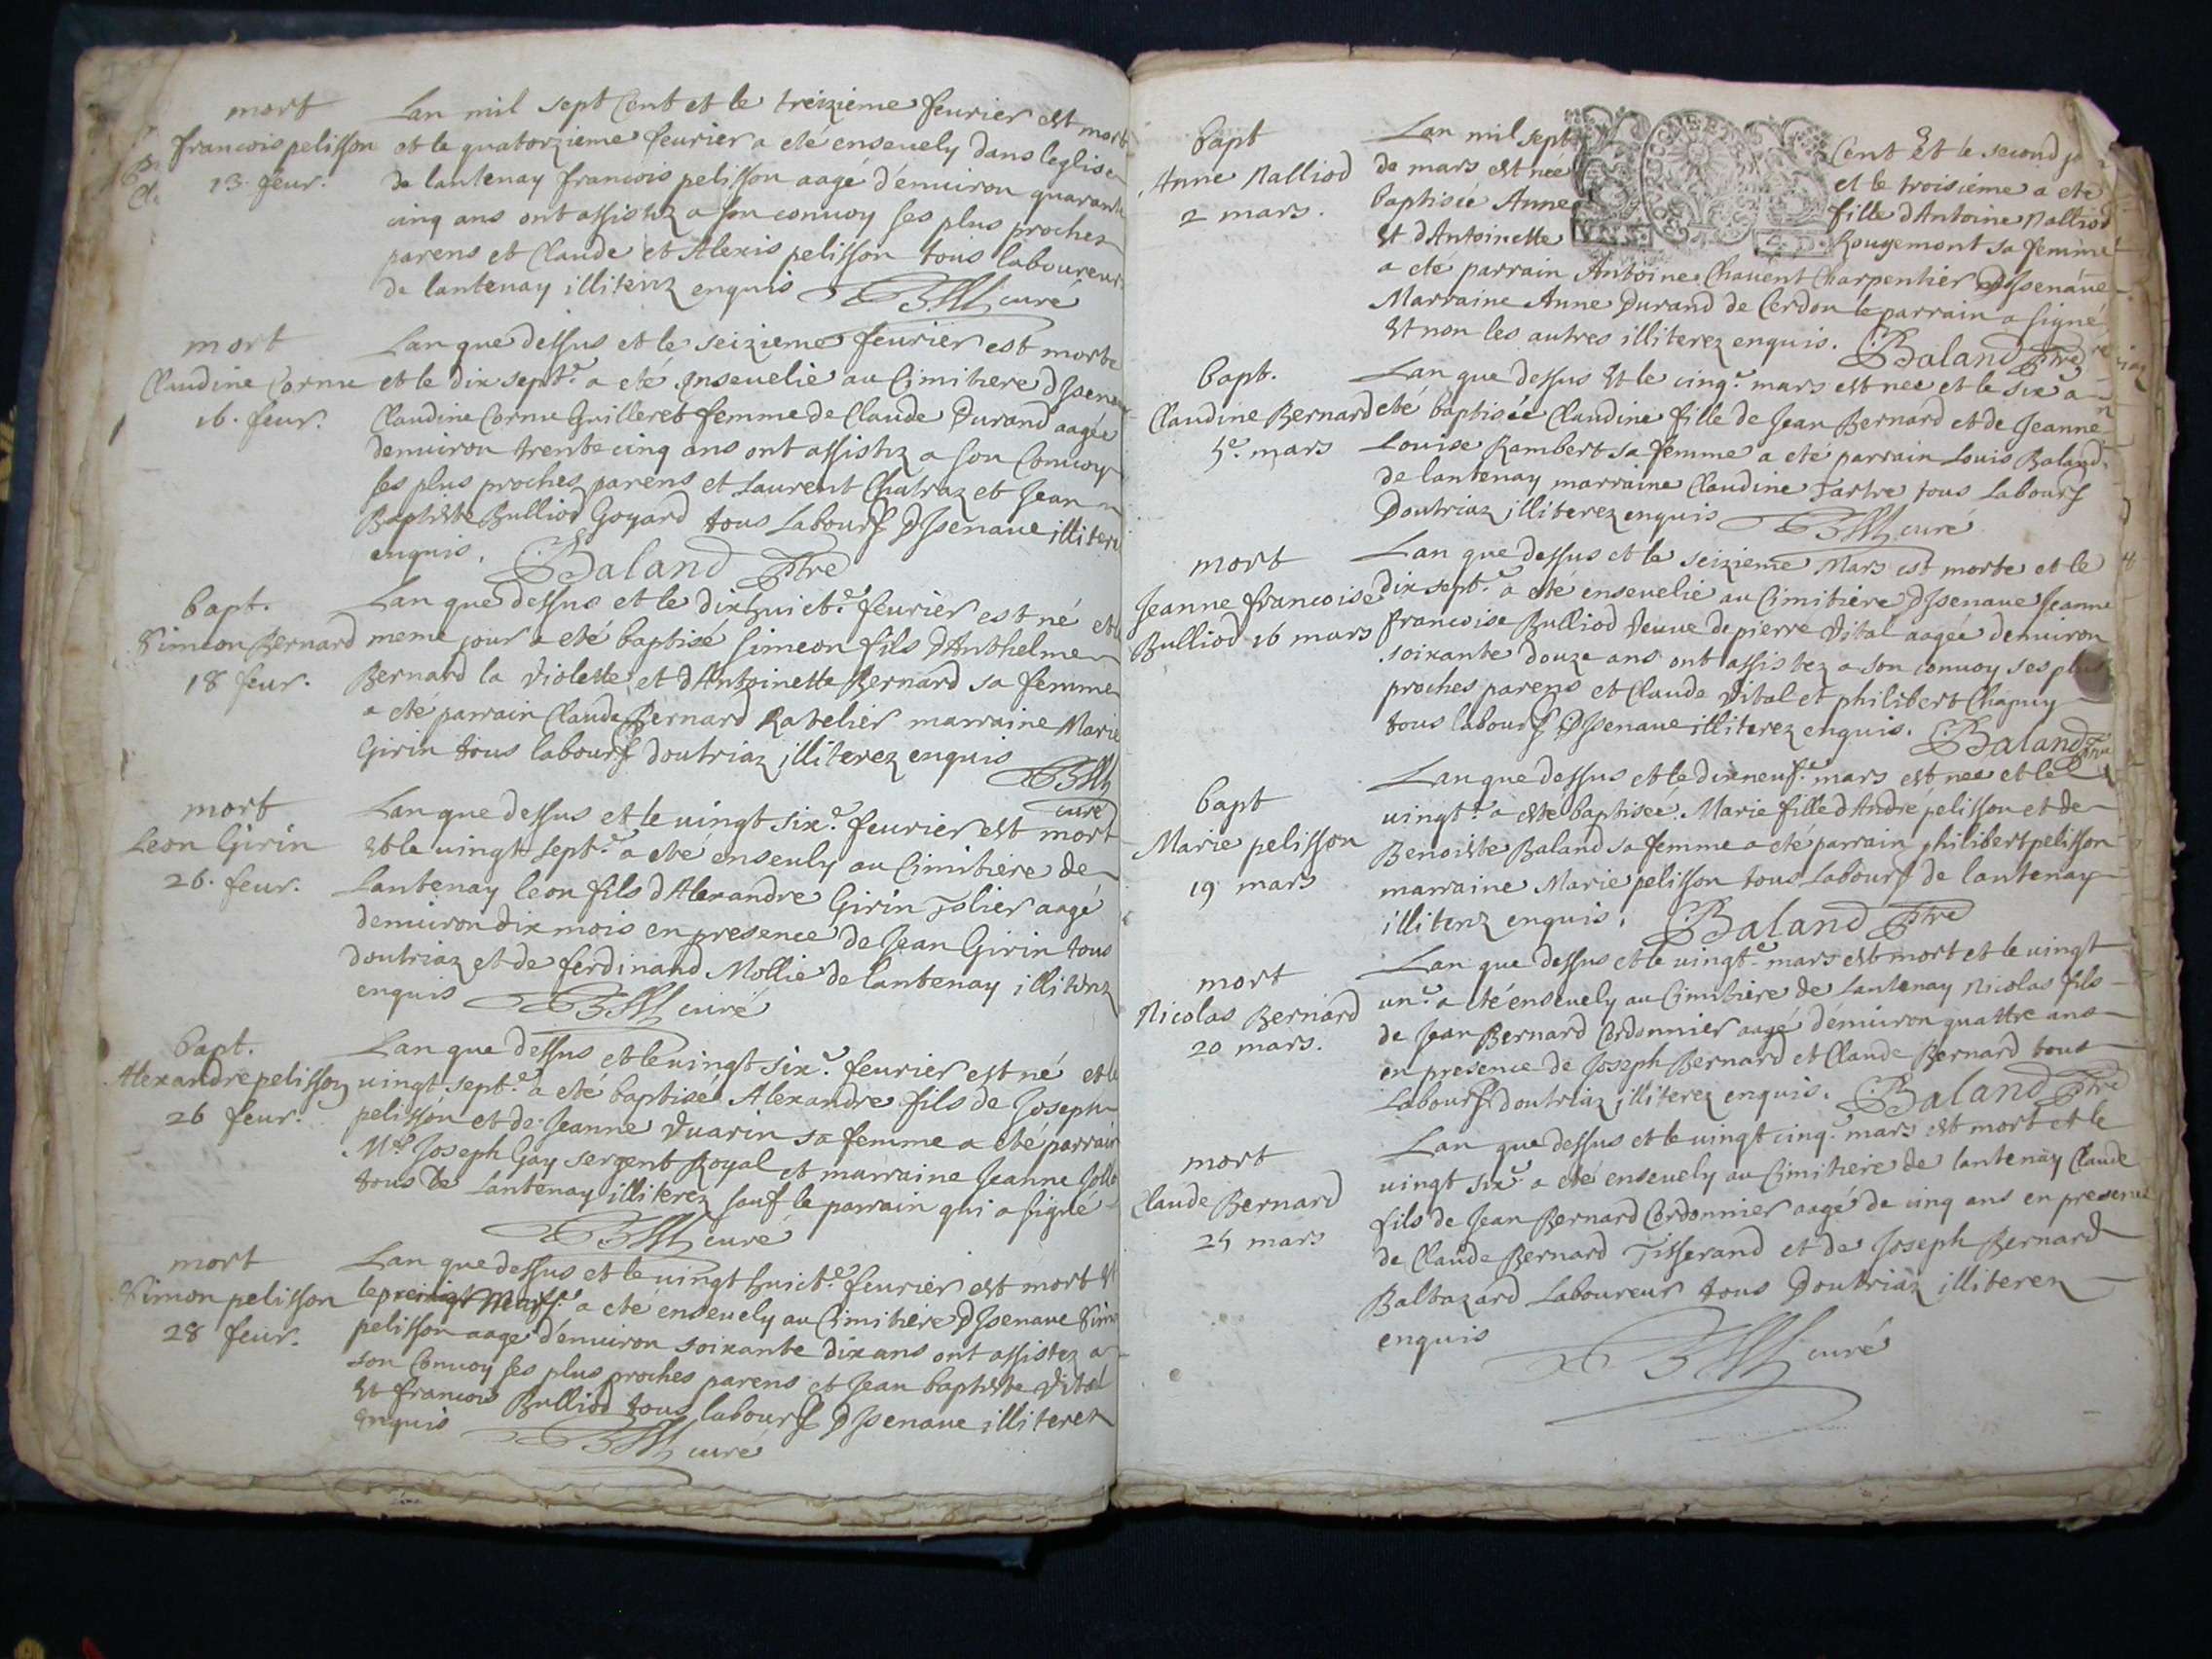 mort
francois pelisson
13. feur.
Lan mil sept Cent et le treizieme feurier est mort
et le quatorzieme feurier a eté enseuely dans leglise
de lantenay francois pelisson aagé d'enuiron quarante
cinq ans ont assistez a son conuoy ses plus proches
parens et Claude et Alexis pelisson tous laboureurs
de lantenay illiterez enquis curé
mort
Claudine Cornu
16. feur.
Lan que dessus et le seizieme feurier est morte
et le dix sept.e a eté Inseuelie au Cimitiere dIsenaue
Claudine Cornu Guilleret femme de Claude Durand aagée
denuiron trente cinq ans ont assistez a son Conuoy
ses plus proches parens et Laurent Chatraz et Jean
Baptiste Bulliod Goyard tous Labours DIsenaue illiterez
enquis. Baland Ptre
bapt.
Simeon Bernard
18 feur.
Lan que dessus et le dixhuict.e feurier est né et le
meme jour a eté baptisé Simeon fils D'Anthelme
Bernard la Violette et d'Antoinette Bernard sa femme
a eté parrain Claude Bernard Ratelier marraine Marie
Girin tous labours doutriaz illiterez enquis
curé
mort
Leon Girin
26. feur.
Lan que dessus et le uingt six.e feurier est mort
et le uingt sept.e a eté enseuly au Cimitiere de
Lantenay leon fils d'Alexandre Girin Tolier aagé
denuiron dix mois en presence de Jean Girin tous
doutriaz et de ferdinand Mollie de lantenay illiterez
enquis curé
bapt.
Alexandre pelisson
26 feur.
Lan que dessus et le uingt six.e feurier est né et le
uingt sept.e a eté baptisé Alexandre fils de Joseph
pelisson et de Jeanne Duarin sa femme a eté parrain
M.re Joseph Gay sergent Royal et marraine Jeanne
tous de Lantenay illiterez sauf le parrain qui a signé
curé
mort
Simon pelisson
28 feur.
Lan que dessus et le uingt huict.e feurier est mort et
le Mars a eté enseuely au Cimitiere DIsenaue Simon
pelisson aagé d'enuiron soixante dix ans ont assistez a
son Conuoy ses plus proches parens et Jean baptiste Vital
et francois Bulliod tous labours DIsenaue illiterez
enquis curé
bapt
Anne Nalliod
2 mars.
Lan mil sept Cent Et le second
de mars est née et le troisieme a eté
baptisée Anne fille d'Antoine Nalliod
et d'Antoinette Rougemont sa femme
a eté parrain Antoine Chauent Charpentier DIsenaue
Marraine Anne Durand de Cerdon le parrain a signé
et non les autres illiterez enquis. Baland Ptre
bapt.
Claudine Bernard
5.e mars
Lan que dessus et le cinq.e mars est nee et le six a
eté baptisée Claudine fille de Jean Bernard et de Jeanne
Louise Rambert sa femme a eté parrain Louis Baland
de lantenay marraine Claudine Tartre tous Labours
Doutriaz illiterez enquis curé
mort
Jeanne francoise
Bulliod 16 mars
Lan que dessus et le seizieme Mars est morte et le
dix sept.e a eté enseuelie au Cimitiere DIsenaue Jeanne
francoise Bulliod Veuue de pierre Vital aagée denuiron
soixante douze ans ont assistez a son conuoy ses plus
proches parens et Claude Vital et philibert Chapuy
tous labours DIsenaue illiterez enquis. Baland Ptre
bapt
Marie pelisson
19 mars
Lan que dessus et le dixneuf.e mars est nee et le
uingt.e a este baptisée Marie fille d'André pelisson et de
Benoiste Baland sa femme a eté parrain philibert pelisson
marraine Marie pelisson tous Labours de lantenay
illiterez enquis. Baland Ptre
mort
Nicolas Bernard
20 mars.
Lan que dessus et le uingt.e mars est mort et le uingt
un.e a eté enseuely au Cimitiere de Lantenay Nicolas fils
de Jean Bernard Cordonnier aagé d'enuiron quattre ans
en presence de Joseph Bernard et Claude Bernard tous
Labours doutriaz illiterez enquis. Baland Ptre
mort
Claude Bernard
25 mars
Lan que dessus et le uingt cinq.e mars est mort et le
uingt six.e a eté enseuely au Cimitiere de lantenay Claude
fils de Jean Bernard Cordonnier aagé de cinq ans en presence
de Claude Bernard Tisserand et de Joseph Bernard
Baltazard Laboureur tous Doutriaz illiterez
enquis curé